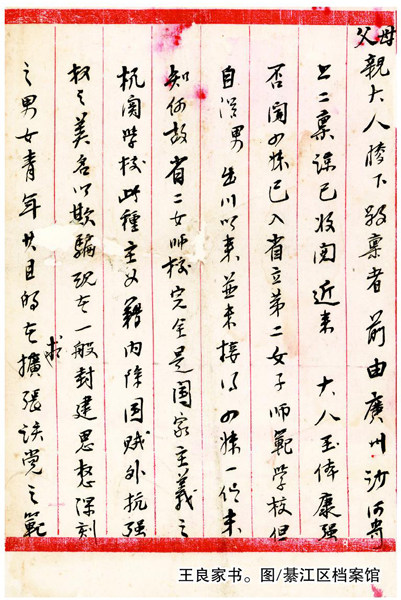 父母親大人膝下敬稟者前由廣州沙河寄
上二稟諒已收閱近來 大人玉体康强
否聞四妹已入省立第二女子師範学校但
自從男出川以來並未接得四妹一信未
知何故省二女師校完全是国家主義之
机関学校此種主义藉內除国贼外抗强
权之美名以欺騙现在一般封建思想深刻
之男女青年其目的在求擴張该党之範
王良家书。图/綦江区档案馆